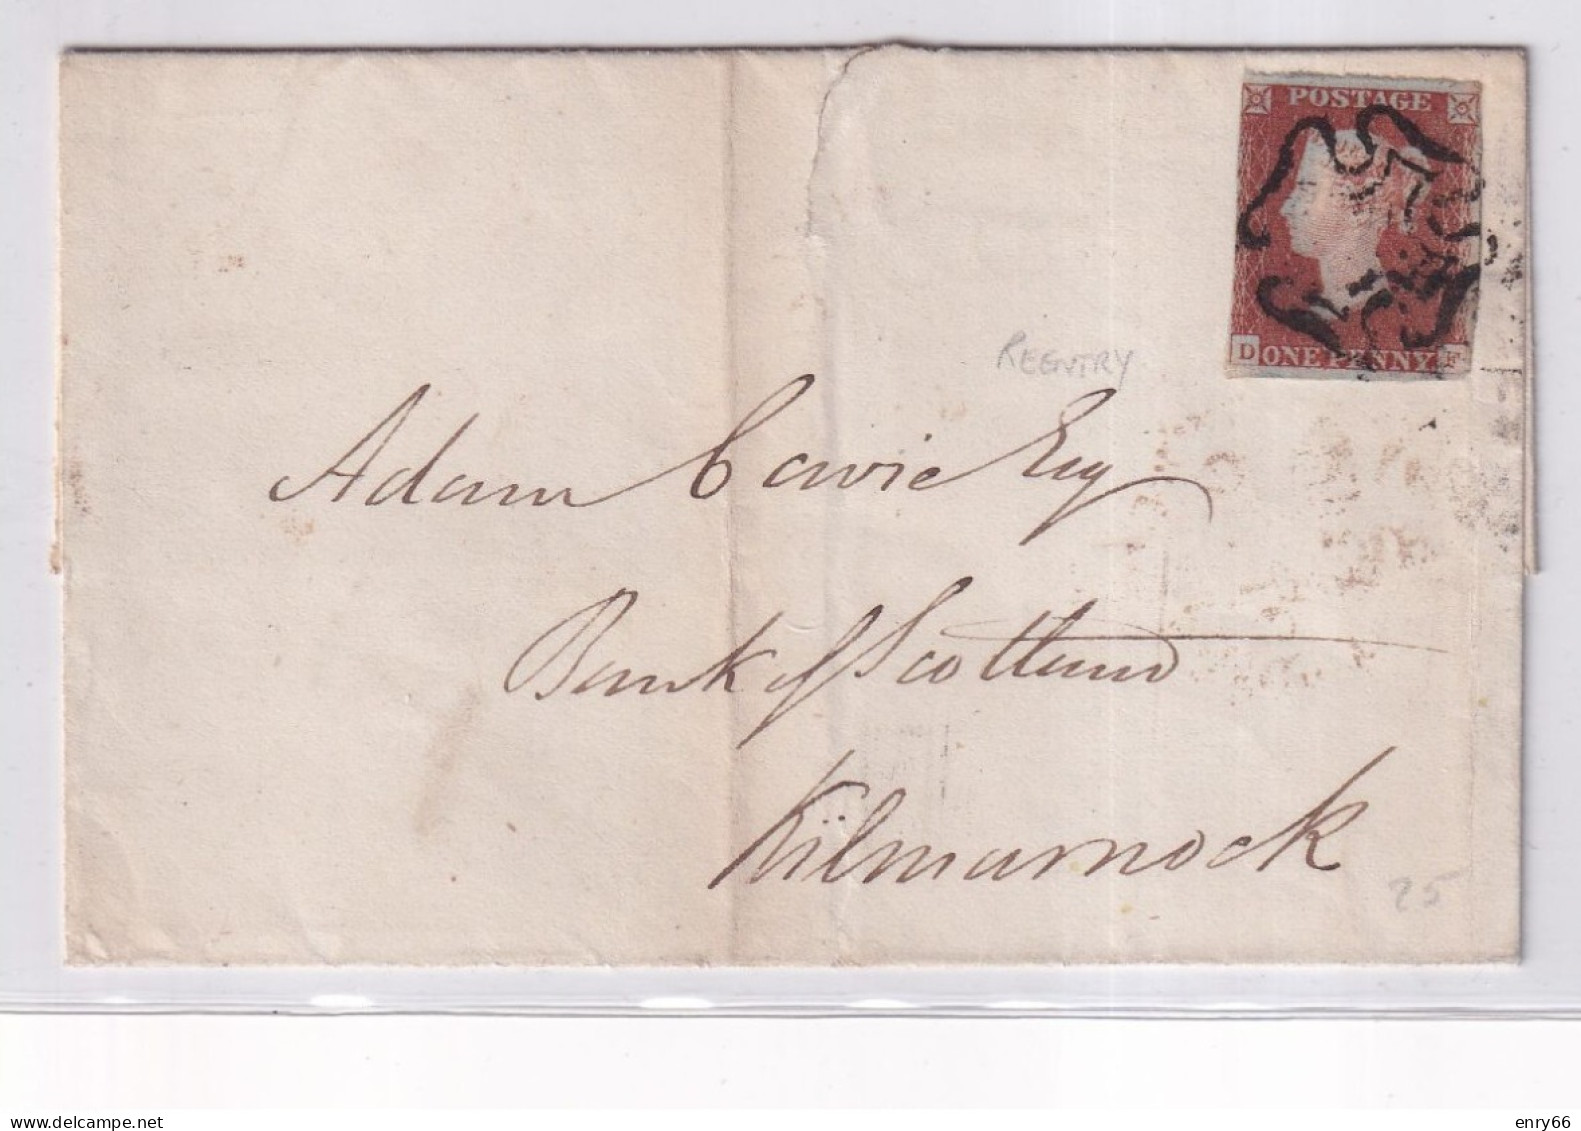 POSTAGE
D ONE PENNY F
REENTRY
Adam Cowie Esq
Bank of Scotland
Kilmarnock
25
www.delcampe.net
enry66